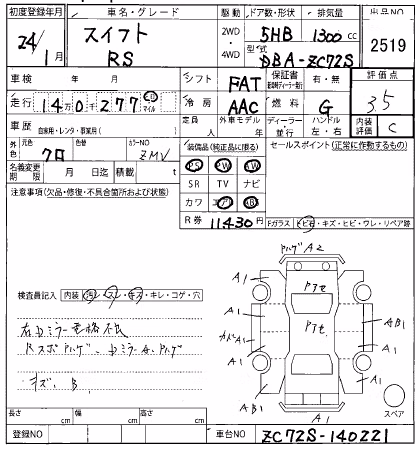 初度登録年月 車名・グレード 駆動 ドア数・形状 排気量 出品NO
24/1月 スイフト RS 2WD・4WD 5HB 1300cc 2519
型式 DBA-ZC72S
車検 年 月 シフト FAT 保証書 有・無 評価点
走行 140277 マイル 冷房 AAC 燃料 G 3.5
車歴 自家用・レンタ・事業用( ) 定員 人 外車モデル 年 ディーラー・並行 ハンドル 左・右 内装評価 C
外色 元色 色替 カラーNO ZMV 装備品(純正品に限る) セールスポイント(正常に作動するもの)
名義変更期限 月 日迄 積載 t PS PW AW
注意事項(欠品・修復・不具合箇所および状態) SR TV ナビ
カワ AB
R券 11430円 Fガラス トビ石・キズ・ヒビ・ワレ・リペア跡
ハゲ A2
A1 A1
検査員記入 内装 汚・スレ・キズ・キレ・コゲ・穴
右ドミラー電格不良
キズ、B
A1 AB1
A1 A1
AB1 A1
スペア
長さ cm 幅 cm 高さ cm
登録NO 車台NO ZC72S-140221